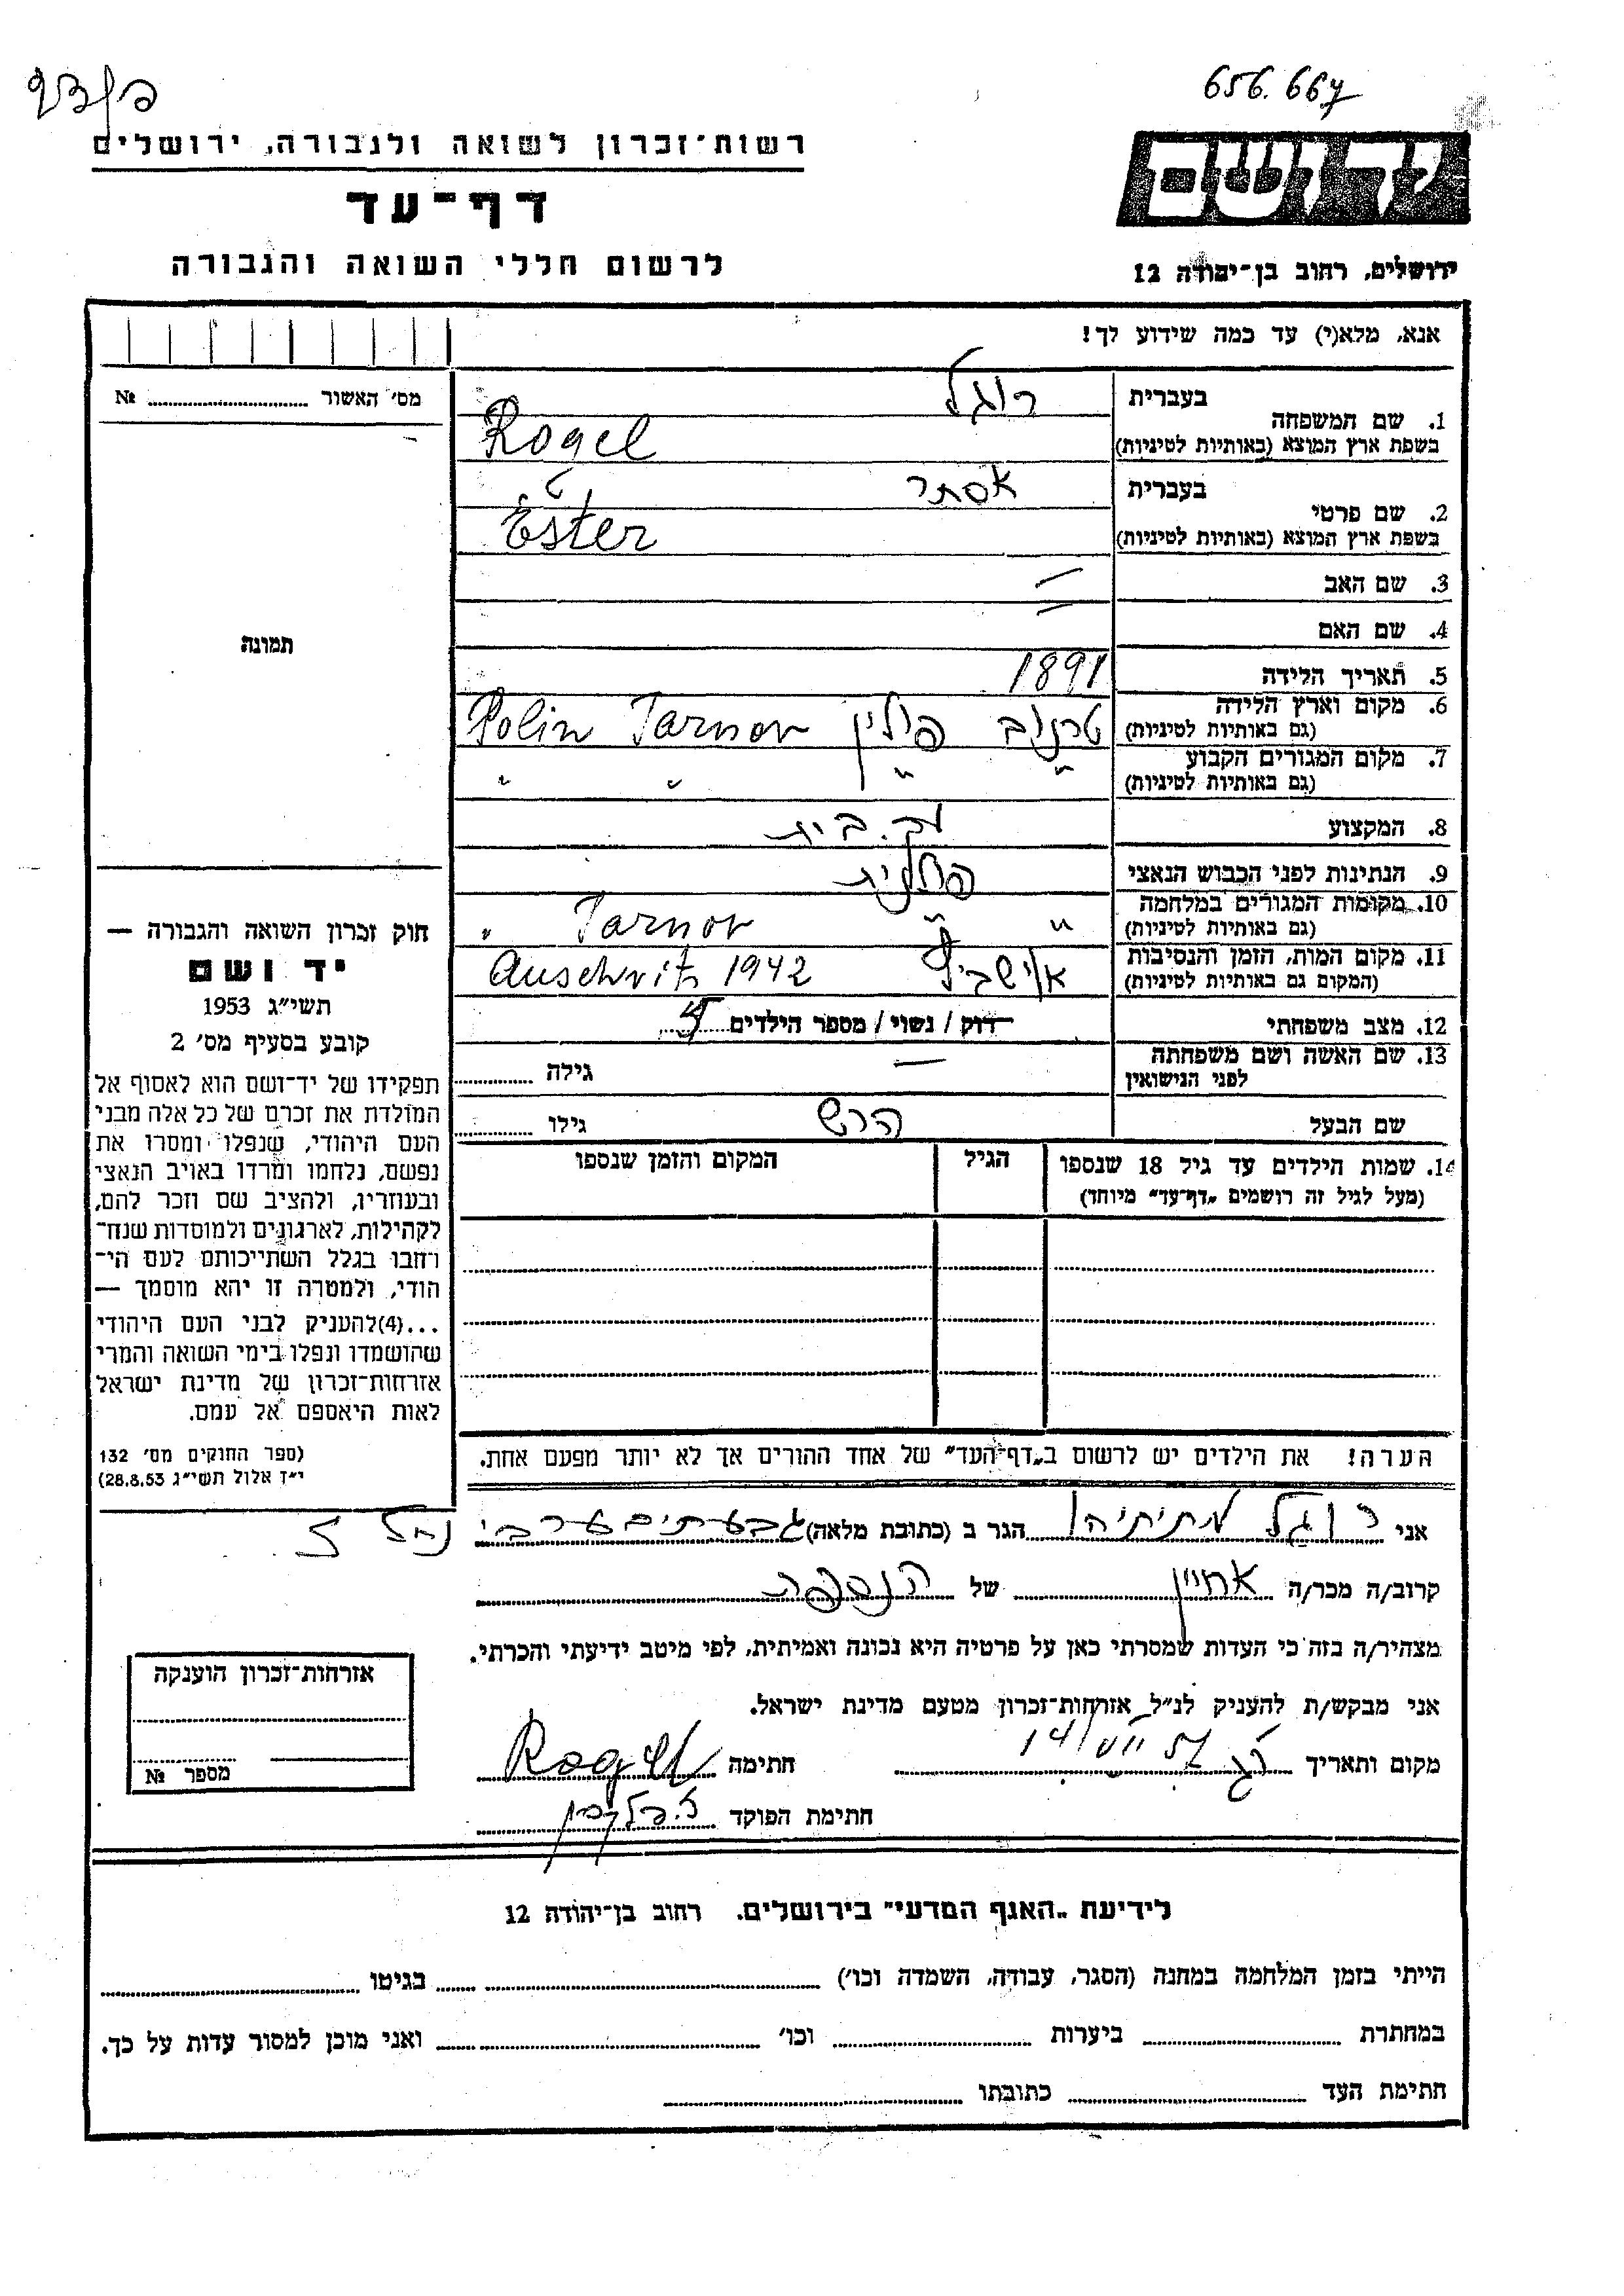 656.667
רשות־זכרון לשואה ולגבורה, ירושלים
יד ושם
דף־עד
לרשום חללי השואה והגבורה
ירושלים, רחוב בן־יהודה 12
אנא, מלא(י) עד כמה שידוע לך!
מס׳ האשור № 
1. שם המשפחה בעברית רוגל
בשפת ארץ המוצא (באותיות לטיניות) Rogel
2. שם פרטי בעברית אסתר
בשפת ארץ המוצא (באותיות לטיניות) Ester
3. שם האב —
4. שם האם —
תמונה
5. תאריך הלידה 1891
6. מקום וארץ הלידה (גם באותיות לטיניות) טרנוב פולין Tarnov Polin
7. מקום המגורים הקבוע (גם באותיות לטיניות) " " " "
8. המקצוע עק. בית
9. הנתינות לפני הכבוש הנאצי פולנית
10. מקומות המגורים במלחמה (גם באותיות לטיניות) " " Tarnov "
11. מקום המות, הזמן והנסיבות (המקום גם באותיות לטיניות) אושביץ Auschvitz 1942
12. מצב משפחתי רוק / נשוי / מספר הילדים
13. שם האשה ושם משפחתה לפני הנישואין — גילה
שם הבעל הרש גילו
14. שמות הילדים עד גיל 18 שנספו (מעל לגיל זה רושמים „דף־עד" מיוחד) הגיל המקום והזמן שנספו
חוק זכרון השואה והגבורה —
יד ושם
תשי״ג 1953
קובע בסעיף מס׳ 2
תפקידו של יד־ושם הוא לאסוף אל
המולדת את זכרם של כל אלה מבני
העם היהודי, שנפלו ומסרו את
נפשם, נלחמו ומרדו באויב הנאצי
ובעוזריו, ולהציב שם וזכר להם,
לקהילות, לארגונים ולמוסדות שנח־
רחבו בגלל השתייכותם לעם הי־
הודי, ולמטרה זו יהא מוסמך —
...(4)להעניק לבני העם היהודי
שהושמדו ונפלו בימי השואה והמרי
אזרחות־זכרון של מדינת ישראל
לאות היאספם אל עמם.
(ספר החוקים מס׳ 132
י״ז אלול תשי״ג 28.8.53)
הערה! את הילדים יש לרשום ב„דף־העד" של אחד ההורים אך לא יותר מפעם אחת.
אני רוגל מתיתיהו הגר ב (כתובת מלאה) גבעתיים ערבי נחל
קרוב/ה מכר/ה אחיין של הנספה
מצהיר/ה בזה כי העדות שמסרתי כאן על פרטיה היא נכונה ואמיתית, לפי מיטב ידיעתי והכרתי.
אני מבקש/ת להעניק לנ״ל אזרחות־זכרון מטעם מדינת ישראל.
מקום ותאריך חתימה Rogel
חתימת הפוקד
אזרחות־זכרון הוענקה
מספר №
לידיעת „האגף המדעי" בירושלים. רחוב בן־יהודה 12
הייתי בזמן המלחמה במחנה (הסגר, עבודה, השמדה וכו׳) בגיטו
במחתרת ביערות וכו׳ ואני מוכן למסור עדות על כך.
חתימת העד כתובתו